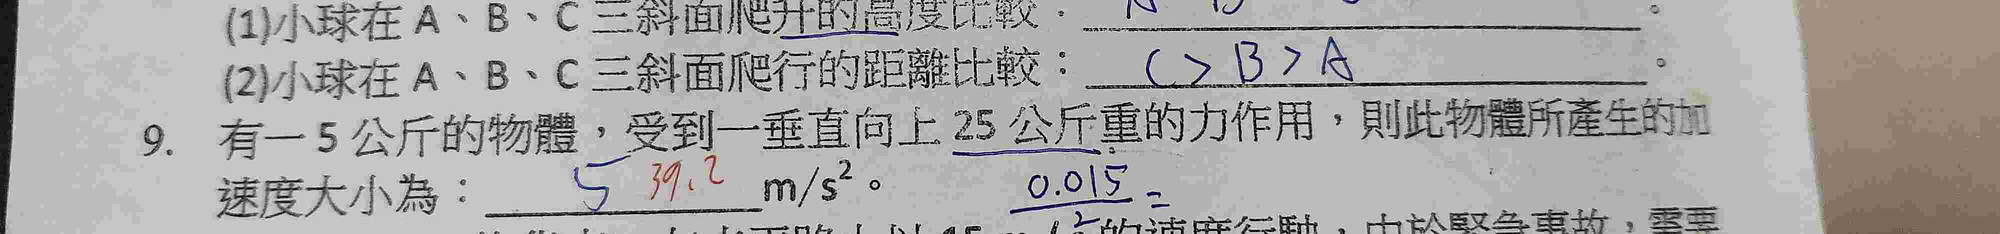 (1)小球在 A、B、C 三斜面爬升的高度比較：
(2)小球在 A、B、C 三斜面爬行的距離比較： C > B > A 。
9. 有一 5 公斤的物體，受到一垂直向上 25 公斤重的力作用，則此物體所產生的加
速度大小為： 5 39.2 m/s²。 0.015 =
的速度行駛，由於緊急事故，需要